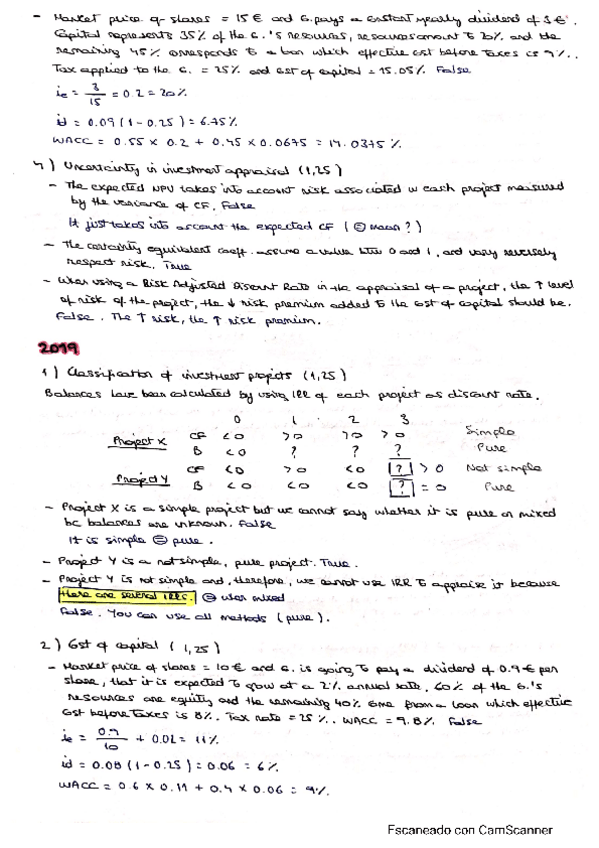 - Market price of shares = 15€ and G. pays a constant yearly dividend of 3€.
Capital represents 35% of the G.'s resources, resources amount to 20% and the
remaining 45% corresponds to a loan which effective cost before taxes is 9%.
Tax applied to the G. = 25% and cost of capital = 15.05%. False
ie = 3/15 = 0.2 = 20%
id = 0.09 (1-0.25) = 6.75%
WACC = 0.55 x 0.2 + 0.45 x 0.0675 = 14.0375%
4) Uncertainty in investment appraisal (1,25)
- The expected NPV takes into account risk associated w each project measured
by the variance of CF. False
It just takes into account the expected CF (= mean?)
- The certainty equivalent coeff. assume a value btw 0 and 1, and vary inversely
respect risk. True
- When using a Risk Adjusted Discount Rate in the appraisal of a project, the ↑ level
of risk of the project, the ↓ risk premium added to the cost of capital should be.
False. The ↑ risk, the ↑ risk premium.
2019
1) Classification of investment projects (1,25)
Balances have been calculated by using IRR of each project as discount rate.
0 1 2 3
Project X CF <0 >0 >0 >0 Simple
B <0 ? ? ? Pure
Project Y CF <0 >0 <0 ? >0 Not simple
B <0 <0 <0 ? = 0 Pure
- Project X is a simple project but we cannot say whether it is pure or mixed
bc balances are unknown. False
It is simple = pure.
- Project Y is a not simple, pure project. True.
- Project Y is not simple and, therefore, we cannot use IRR to appraise it because
there are several IRRs. = when mixed
False. You can use all methods (pure).
2) Cost of capital (1,25)
- Market price of shares = 10€ and G. is going to pay a dividend of 0.9€ per
share, that it is expected to grow at a 2% annual rate. 60% of the G.'s
resources are equity and the remaining 40% come from a loan which effective
cost before taxes is 8%. Tax rate = 25%. WACC = 9.8% False
ie = 0.9/10 + 0.02 = 11%
id = 0.08 (1-0.25) = 0.06 = 6%
WACC = 0.6 x 0.11 + 0.4 x 0.06 = 9%
Escaneado con CamScanner